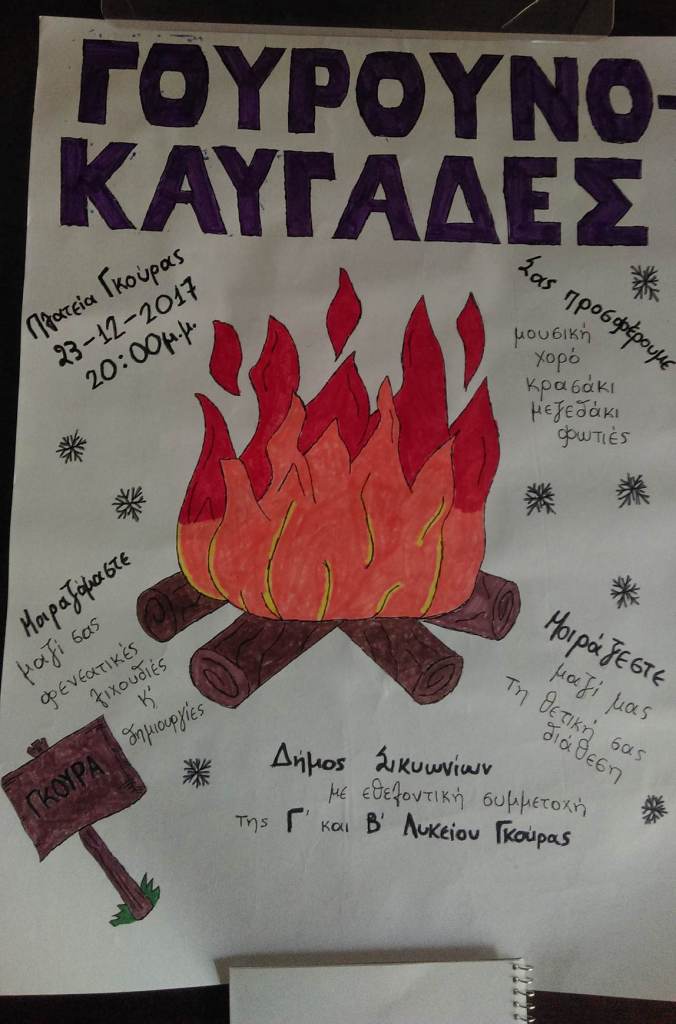 ΓΟΥΡΟΥΝΟ-
ΚΑΥΓΑΔΕΣ
Πλατεία Γκούρας
23-12-2017
20:00μ.μ.
Σας προσφέρουμε
μουσική
χορό
κρασάκι
μεζεδάκι
φωτιές
Μοιραζόμαστε
μαζί σας
φενεατικές
λιχουδιές
κ'
δημιουργίες
Μοιράζεστε
μαζί μας
τη θετική σας
διάθεση
ΓΚΟΥΡΑ
Δήμος Σικυωνίων
με εθελοντική συμμετοχή
της Γ' και Β' Λυκείου Γκούρας